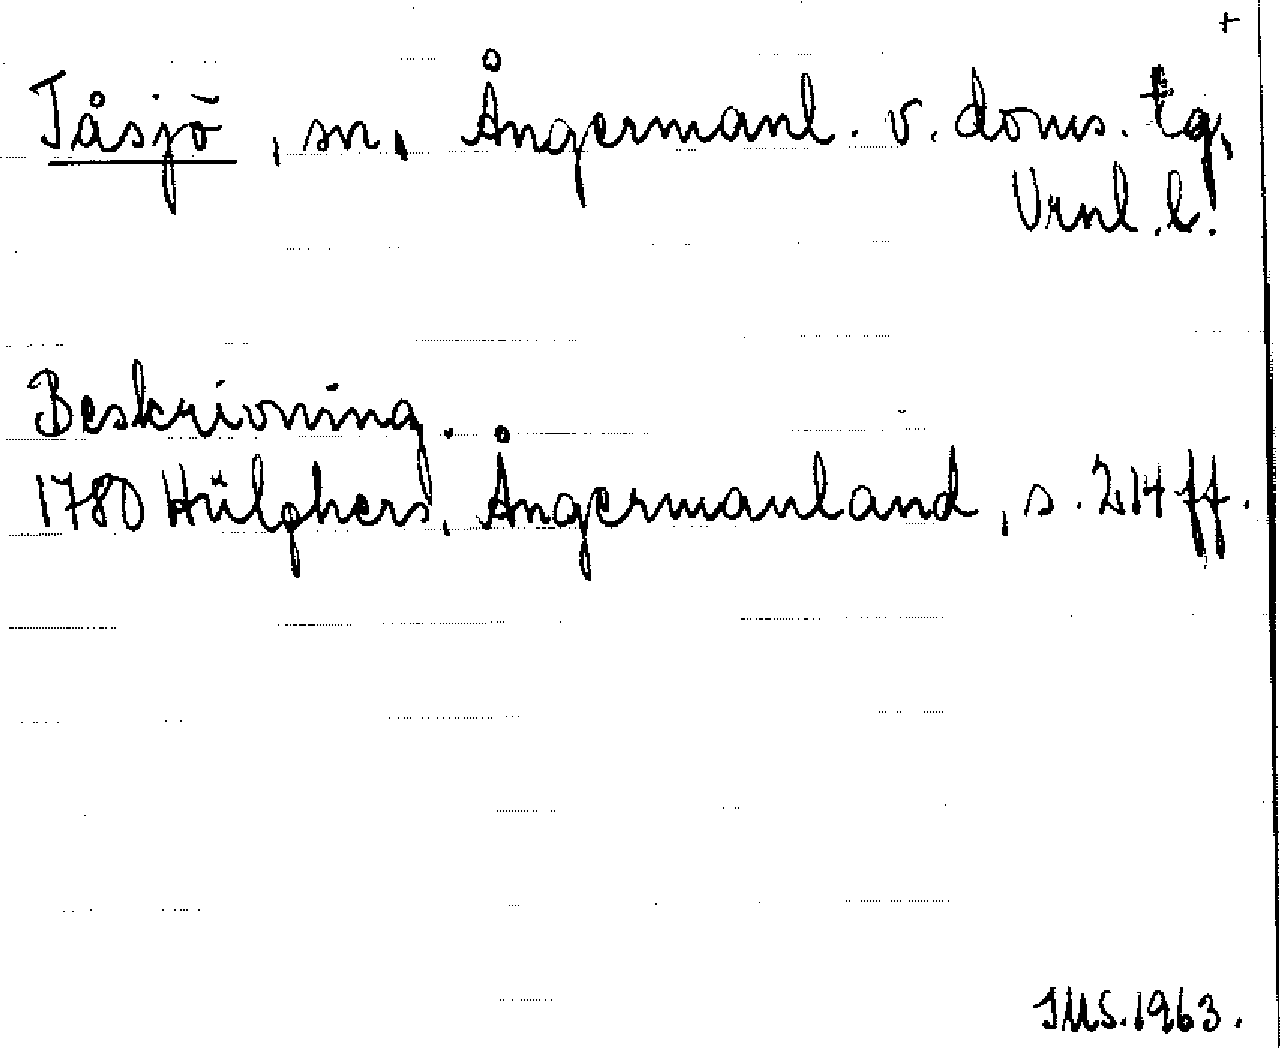 +
Tåsjö, sn, Ångermanl. v. doms. tg,
Vrnl. l.
Beskrivning.
1780 Hülphers, Ångermanland, s. 214 ff.
IMS. 1963.